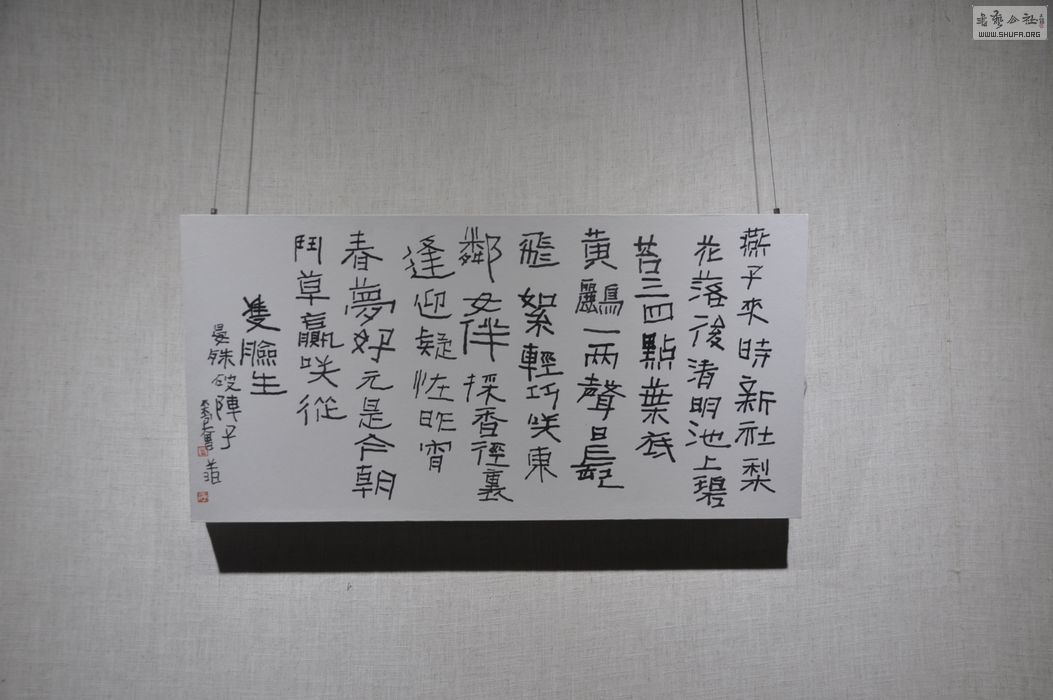 燕子來時新社梨
花落後清明池上碧
苔三四點葉底
黃鸝一兩聲日長
飛絮輕巧咲東
鄰女伴採香徑裏
逢迎疑怪昨宵
春夢好元是今朝
鬥草贏咲從
雙臉生
晏殊破陣子
書藝公社
WWW.SHUFA.ORG